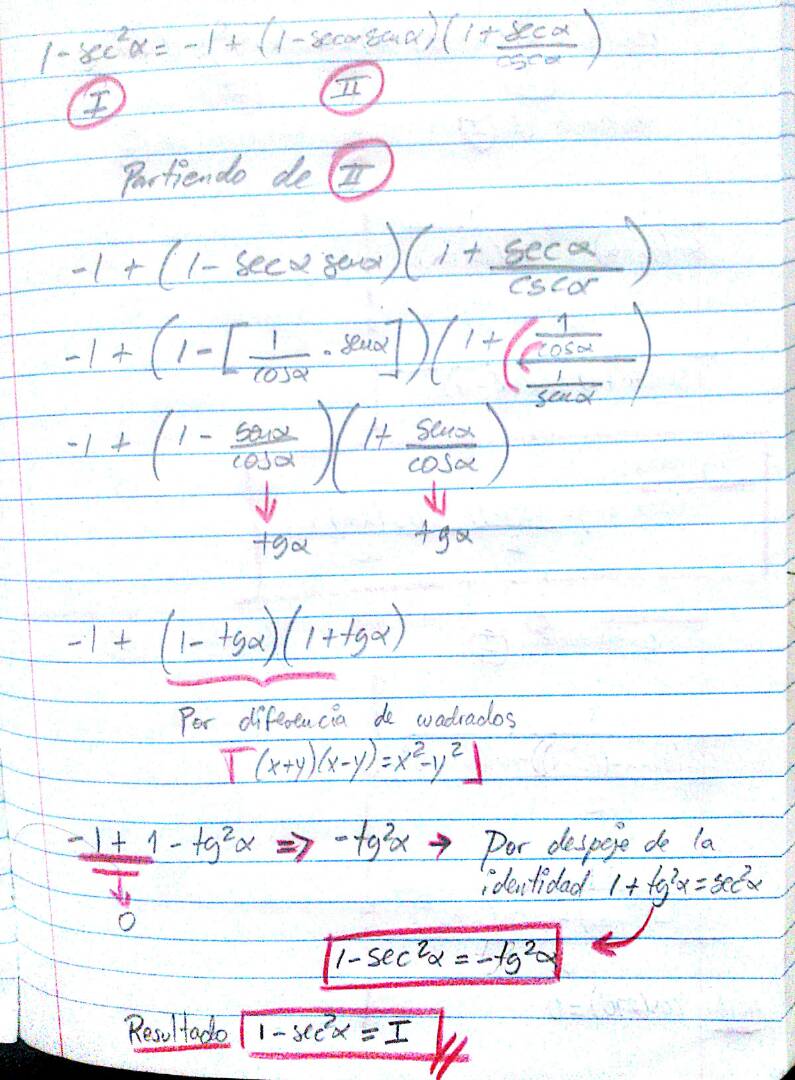 1-sec²α = -1 + (1-secα senα)(1+secα/cscα)
I II
Partiendo de II
-1 + (1 - secα senα)(1 + secα/cscα)
-1 + (1 - [1/cosα · senα])(1 + (1/cosα)/(1/senα))
-1 + (1 - senα/cosα)(1 + senα/cosα)
tgα tgα
-1 + (1 - tgα)(1 + tgα)
Por diferencia de cuadrados
(x+y)(x-y)=x²-y²
-1 + 1 - tg²α => -tg²α → Por despeje de la
identidad 1 + tg²α = sec²α
0
1-sec²α = -tg²α
Resultado 1-sec²α = I